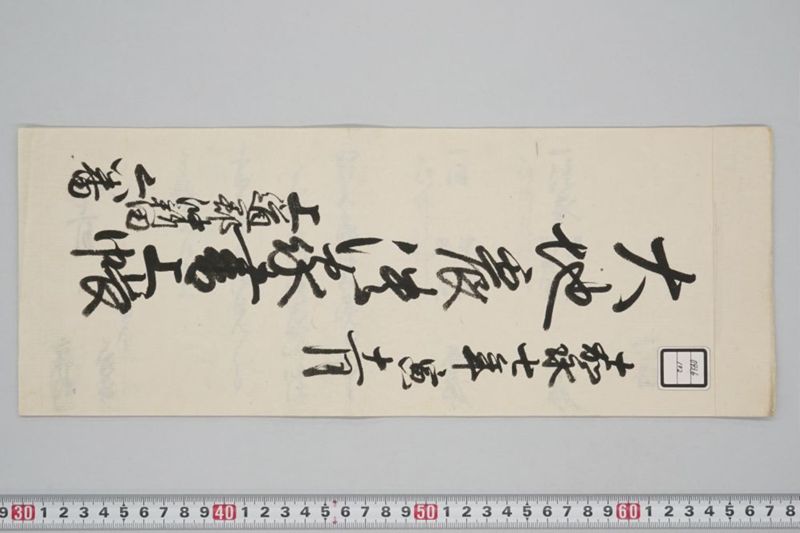 嘉永七年寅十一月
大地震家書上帳
上道郡
番
0926
172
9 30 1 2 3 4 5 6 7 8 9 40 1 2 3 4 5 6 7 8 9 50 1 2 3 4 5 6 7 8 9 60 1 2 3 4 5 6 7 8